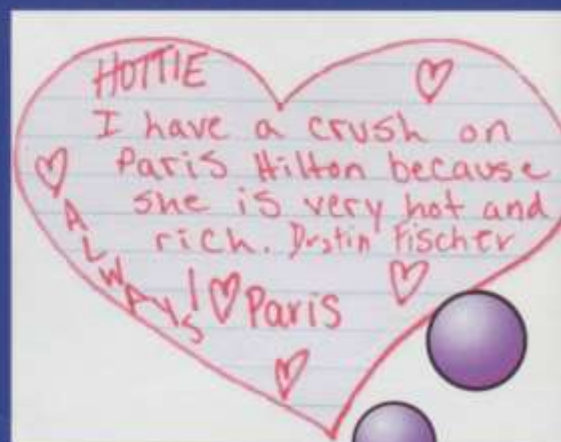 HOTTIE
I have a crush on
Paris Hilton because
she is very hot and
rich. Dustin Fischer
ALWAYS
I ♡ Paris